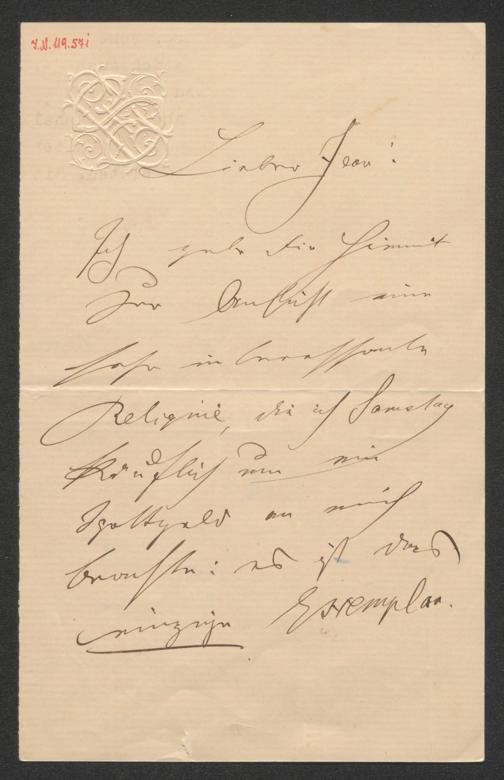 I.N. 119.571
Lieber Jean!
Ich gebe dir hiemit
zur Ansicht eine
sehr interessante
Reliquie, die ich Samstag
käuflich um ein
Spottgeld an mich
brachte: es ist das
einzige Exemplar.